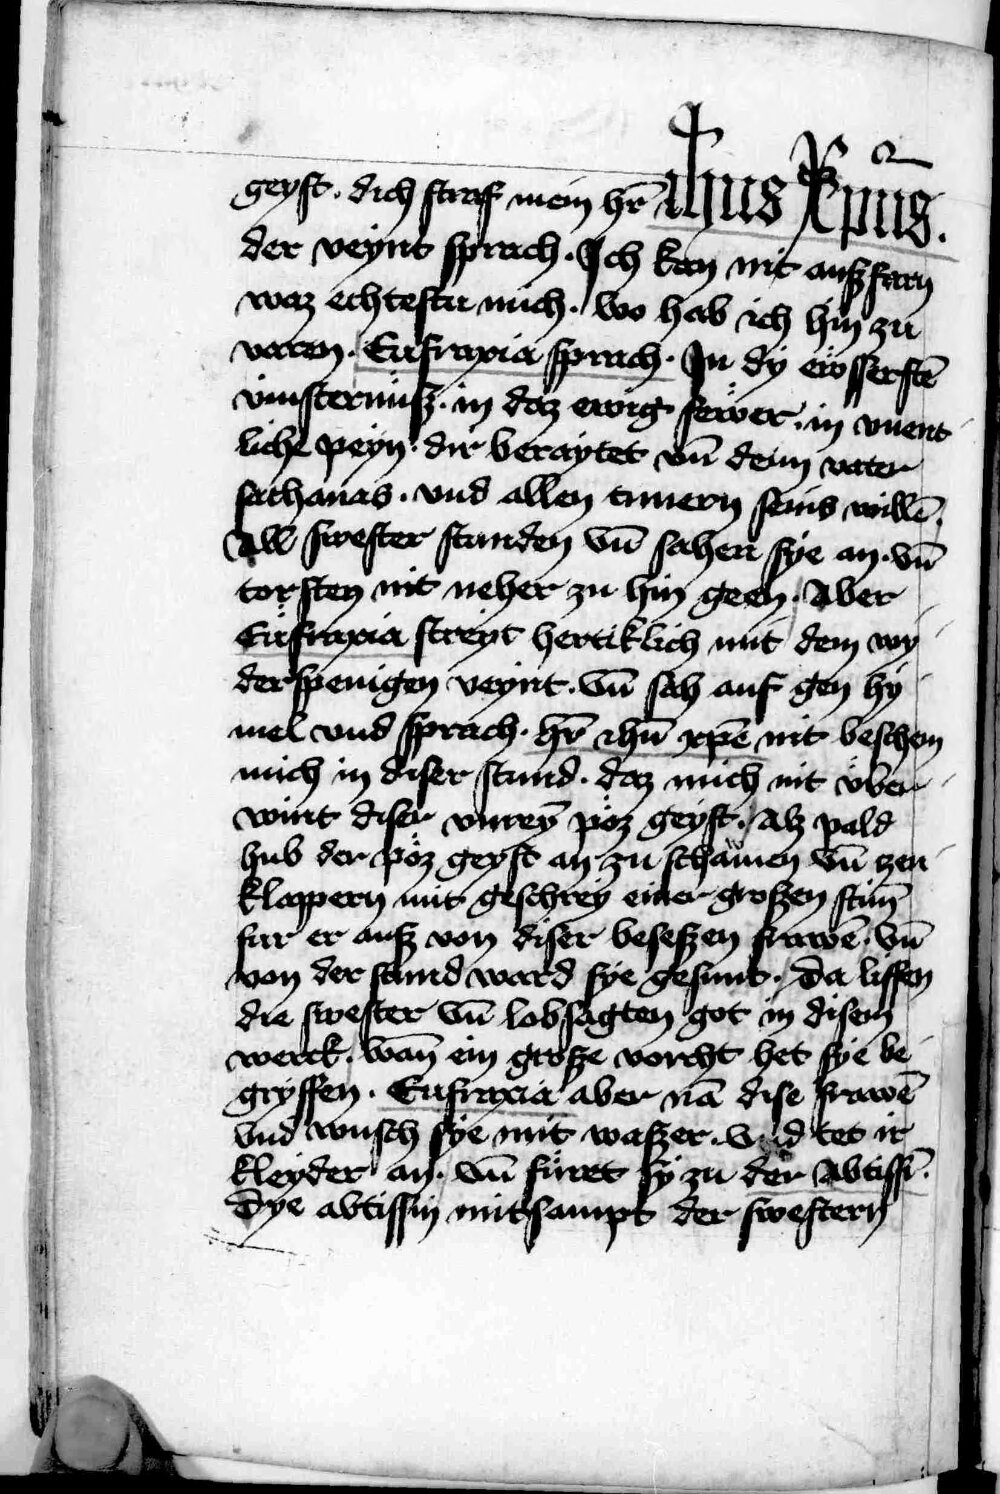 geyst. dich straf mein hr̄ ihus Xp̄us.
der veynt sprach. Ich kan nit auszfarn
waz echtestu mich. wo hab ich hin zu
varen. Eufraxia sprach. In dy eẅsserstē
vinsternüsz. in daz ewig feẅer. in vnent
liche peyn. dir beraytet vn̄ deim vater
sathanas. vnd allen tunern seins willē.
All swester stunden vn̄ sahen sye an. vn̄
torsten nit neher zu hin geen. Aber
Eüfraxia streyt hertiklich mit dem wy
derspenigen veynt. vn̄ sah auf gen hy
mel vnd sprach. hr̄ ihū xpē nit beschem
mich in diser stund. daz mich nit über
wint diser vnreȳ pöz geyst. Alz pald
hub der pöz geyst an zu schaümen vn̄ zen
kloppern mit geschrey einer groszen stim̄
fur er ausz von diser beseszen frawē. vn̄
von der stund ward sye gesunt. Da liffen
die swester vn̄ lobsagten got in disem
werck. wan̄ ein grosze vorcht het sye be
gryffen. Eufraxia aber nā dise frawē
vnd wusch sye mit waszer. vnd tet ir
kleyder an. vn̄ füret sy zu der Abtissī.
Dye abtissin mitsampt der swestern